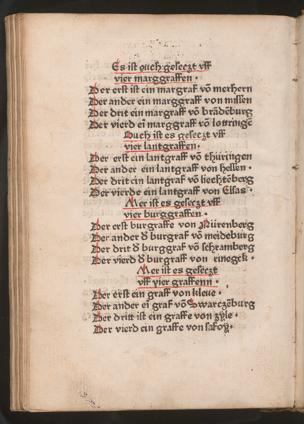 Es ist ouch gesetzt vff
vier marggraffen.
Der erst ist ein margraf vō merhern
Der ander ein marggraff von missen
Der drit ein margraff vō brādēburg
Der vierd eī marggraff vō lottringē
Ouch ist es gesetzt vff
vier lantgraffen.
Der erst ein lantgraff vō thüringen
Der ander ein lantgraff von hessen.
Der drit ein lantgraf vō liechtēberg
Der vierde ein lantgraf von Elsas.
Mer ist es gesetzt vff
vier burggraffen.
Der erst burgraffe von Nürenberg
Der ander d̄ burgraf vō meideburg
Der drit d̄ burgraf vō schramberg
Der vierd d̄ burgraf von rineck.
Mer ist es gesetzt
vff vier graffenn.
Der erst ein graff von kleue.
Der ander eī graf vō Swarczburg
Der dritt ist ein graffe von
Der vierd ein graffe von safoy.